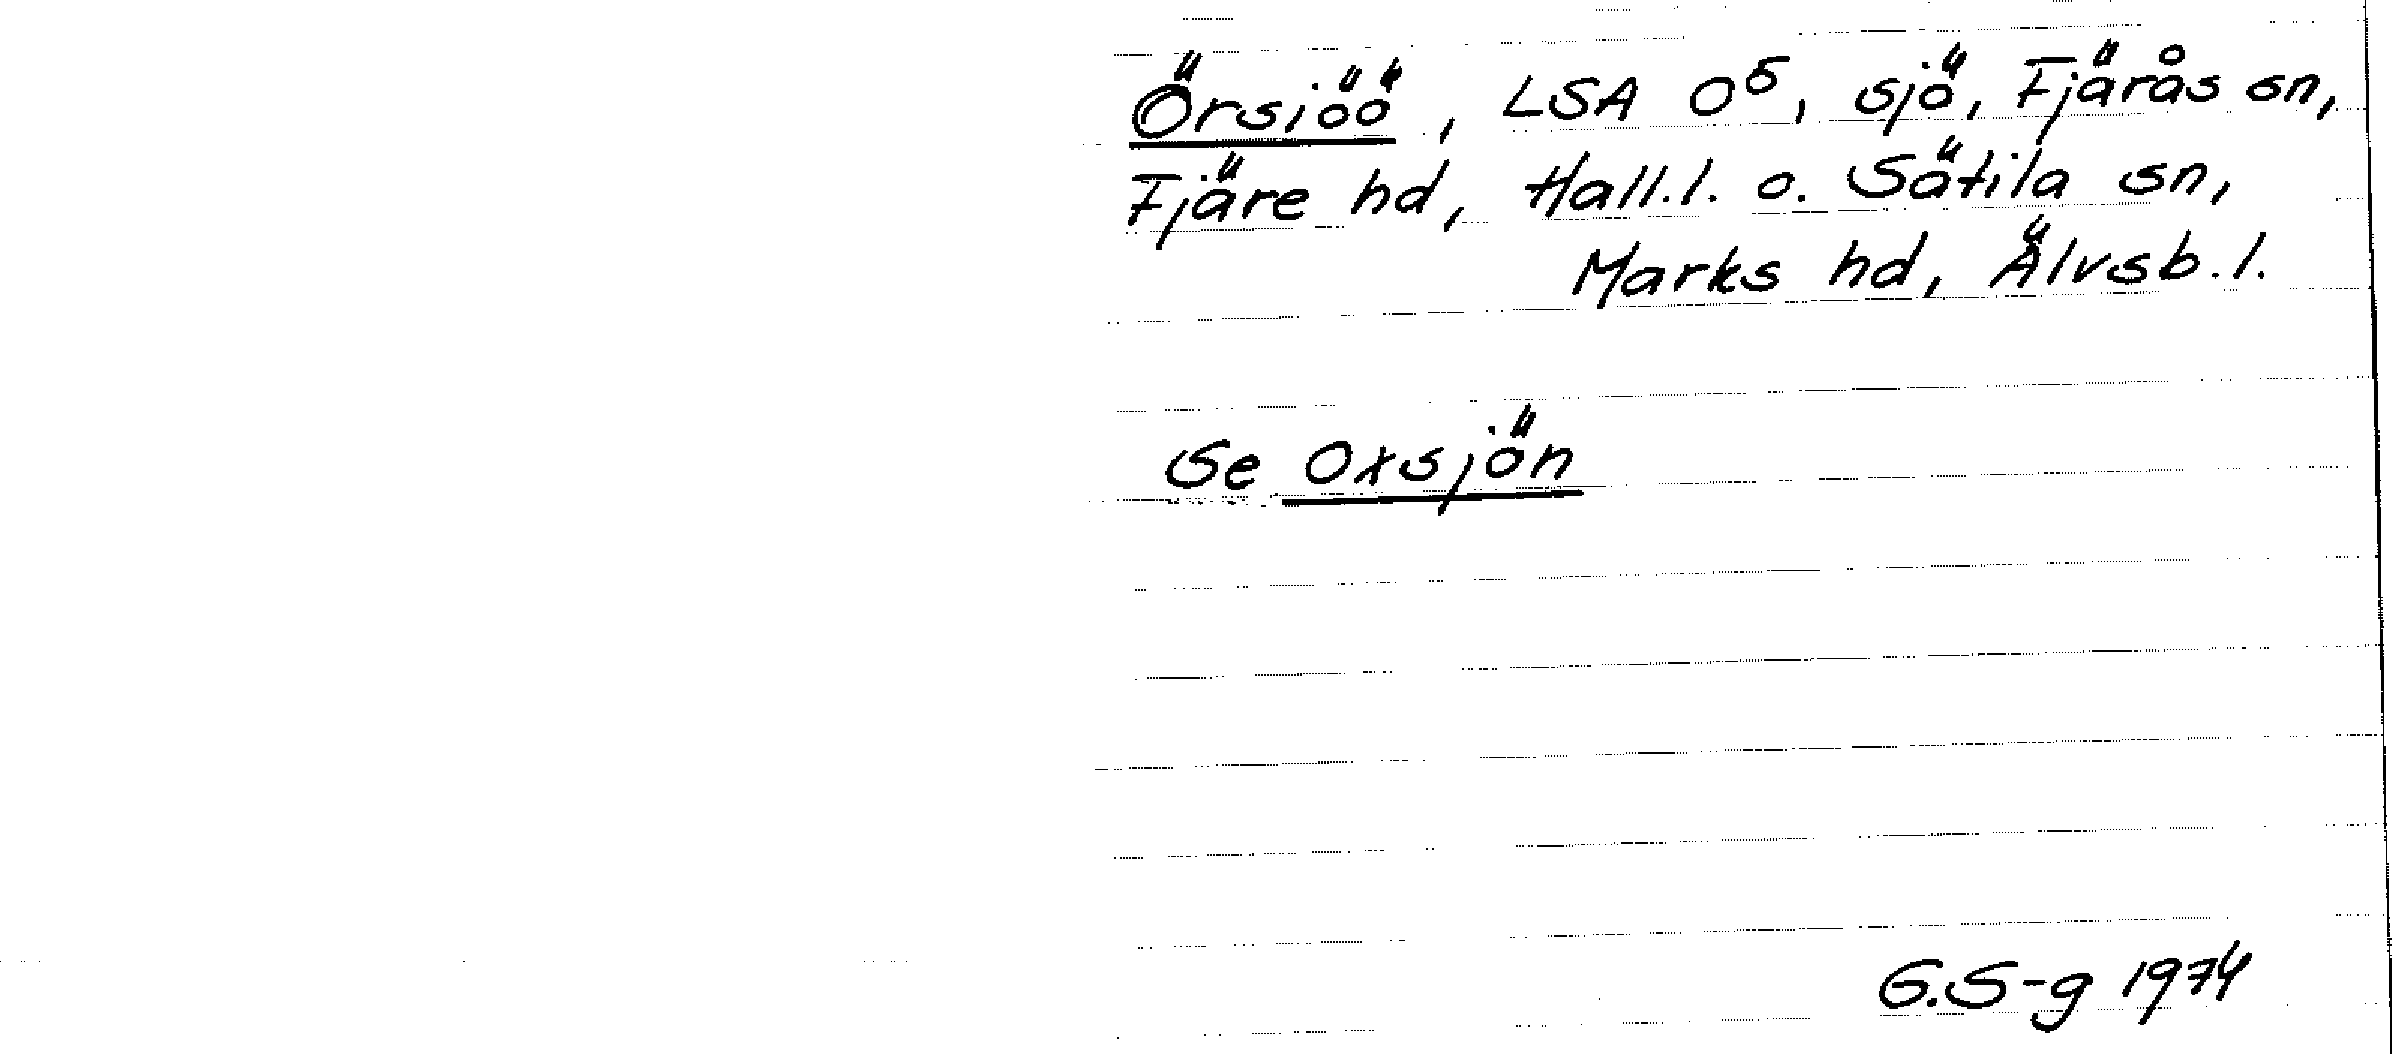 Örsiöö, LSA O⁵, sjö, Fjärås sn,
Fjäre hd, Hall.l. o. Sätila sn,
Marks hd, Älvsb.l.
Se Oxsjön
G.S-g 1974